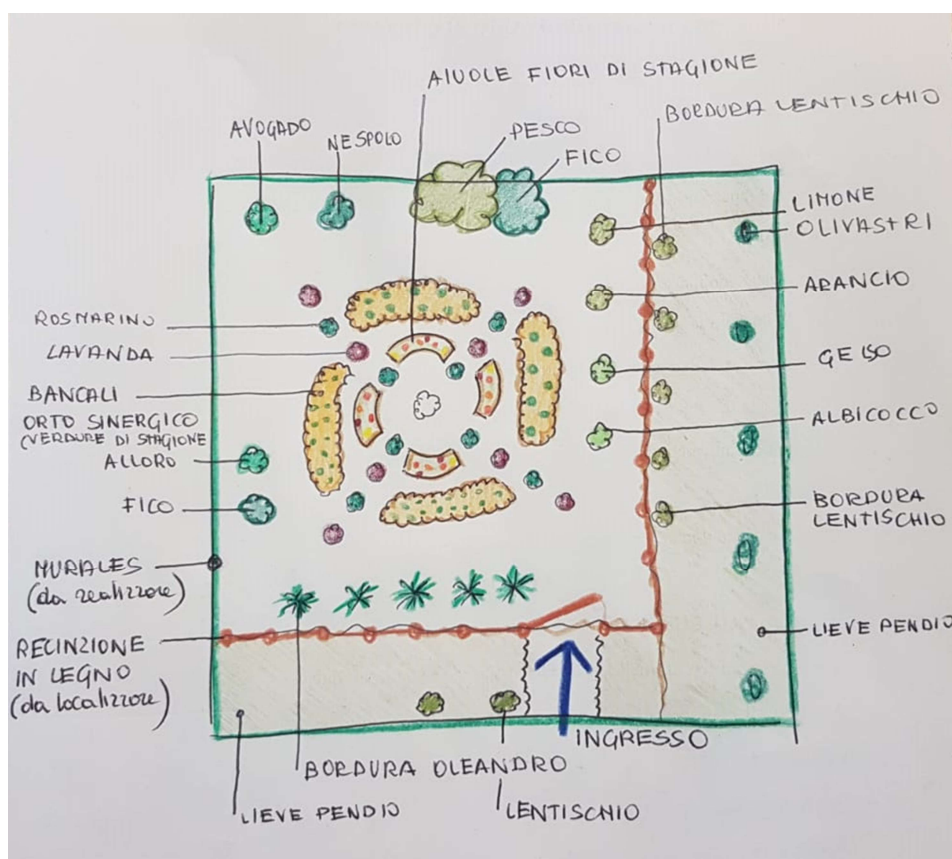 AIUOLE FIORI DI STAGIONE
BORDURA LENTISCHIO
AVOGADO
NESPOLO
PESCO
FICO
LIMONE
OLIVASTRI
ARANCIO
GELSO
ALBICOCCO
BORDURA
LENTISCHIO
LIEVE PENDIO
ROSMARINO
LAVANDA
BANCALI
ORTO SINERGICO
(VERDURE DI STAGIONE
ALLORO
FICO
MURALES
(da realizzare)
RECINZIONE
IN LEGNO
(da localizzare)
INGRESSO
BORDURA OLEANDRO
LIEVE PENDIO
LENTISCHIO